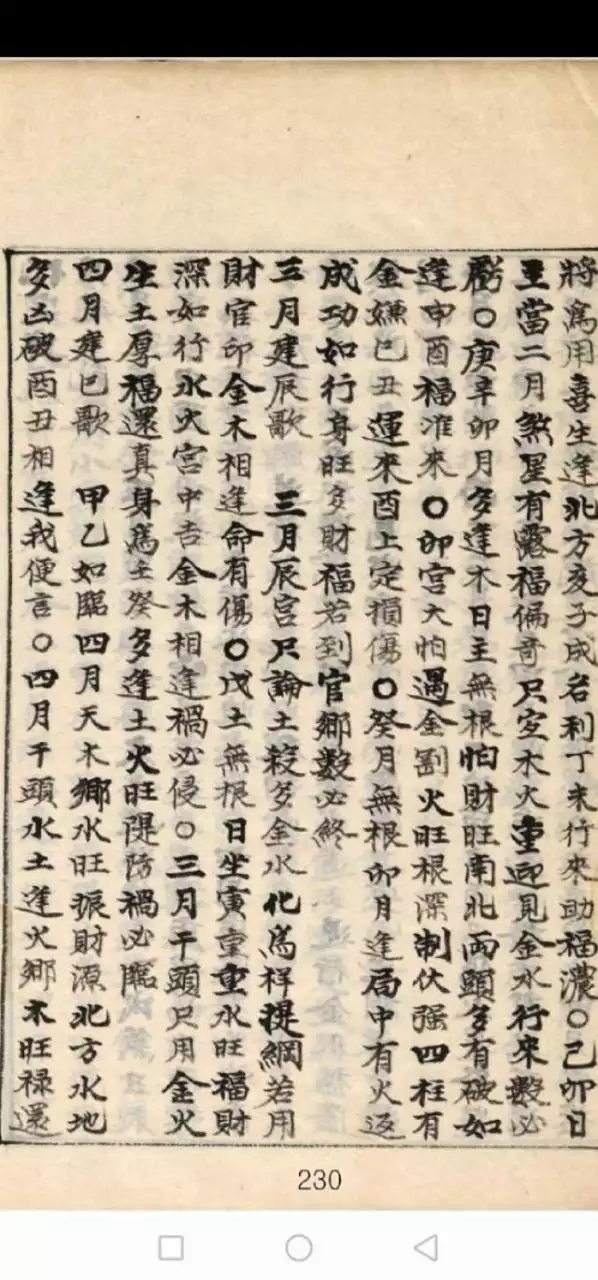 將爲用喜生逢北方亥子成名利丁未行來助福濃〇己卯日
主當二月煞星有露福偏奇只宜木火重迎見金水行來數必
虧〇庚辛卯月多逢木日主無根怕財旺南北兩頭多有破如
逢申酉福准來〇卯宮大怕遇金劉火旺根深制伏强四柱有
金嫌巳丑運來酉上定損傷〇癸月無根卯月逢局中有火返
成功如行身旺多財福若到官鄉數必終
三月建辰歌 三月辰宮只論土殺多金水化爲祥提綱若用
財官印金木相逢命有傷〇戊土無根日坐寅重重水旺福財
深如行水火宮中吉金木相逢禍必侵〇三月干頭只用金火
生土厚福還真身爲壬癸多逢土火旺隄防禍必臨
四月建巳歌 甲乙如臨四月天木鄉水旺振財源北方水地
多凶破酉丑相逢我便言〇四月干頭水土逢火鄉木旺祿還
230